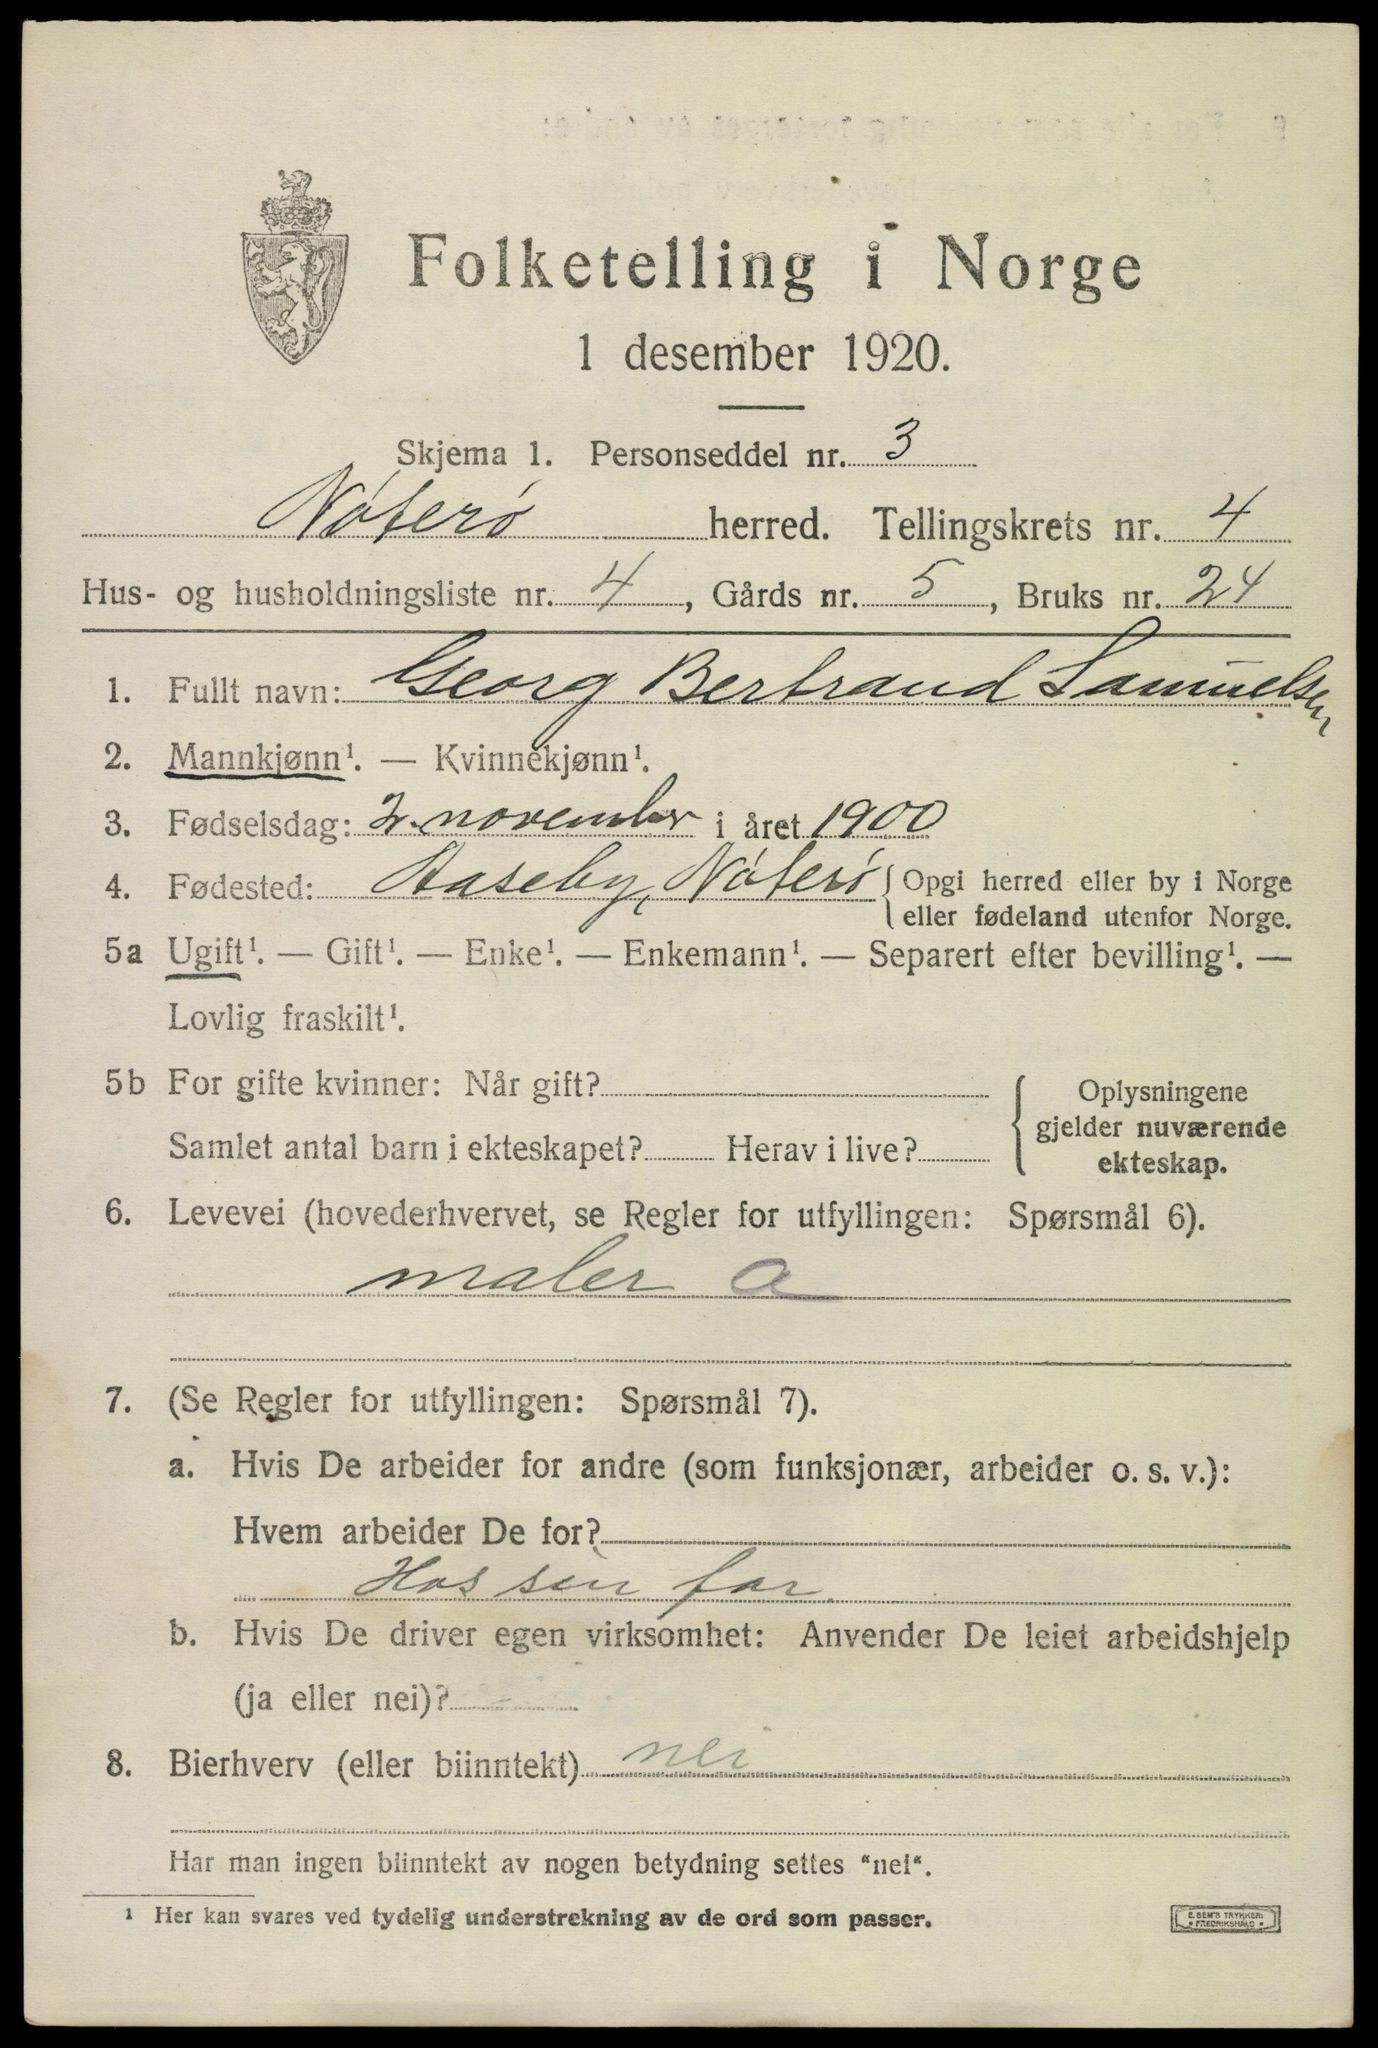 Folketelling i Norge
1 desember 1920.
Skjema 1. Personseddel nr. 3
Nóteró herred. Tellingskrets nr. 4
Hus- og husholdningsliste nr. 4, Gårds nr. 5, Bruks nr. 24
1. Fullt navn: Georg Bertrand Samuelsen
2. Mannkjønn¹. — Kvinnekjønn¹.
3. Fødselsdag: 2. november i året 1900
4. Fødested: Aaseby, Nóteró { Opgi herred eller by i Norge
eller fødeland utenfor Norge.
5a Ugift¹. — Gift¹. — Enke¹. — Enkemann¹. — Separert efter bevilling¹. —
Lovlig fraskilt¹.
5b For gifte kvinner: Når gift?
Samlet antal barn i ekteskapet? Herav i live?
Oplysningene
gjelder nuværende
ekteskap.
6. Levevei (hovederhvervet, se Regler for utfyllingen: Spørsmål 6).
maler a
7. (Se Regler for utfyllingen: Spørsmål 7).
a. Hvis De arbeider for andre (som funksjonær, arbeider o. s. v.):
Hvem arbeider De for?
Hos sin far.
b. Hvis De driver egen virksomhet: Anvender De leiet arbeidshjelp
(ja eller nei)?
8. Bierhverv (eller biinntekt) nei
Har man ingen biinntekt av nogen betydning settes "nei".
¹ Her kan svares ved tydelig understrekning av de ord som passer.
E. SEM'S TRYKKERI
• FREDRIKSHALD •